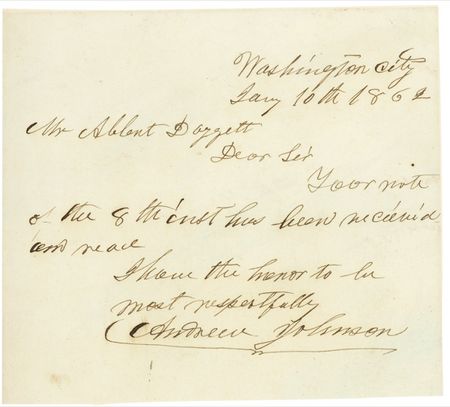 Washington City
Jany 10th 1862
Mr Albert Daggett
Dear Sir
Your note
of the 8th inst has been recieved
and read
I have the honor to be
most respectfully
Andrew Johnson